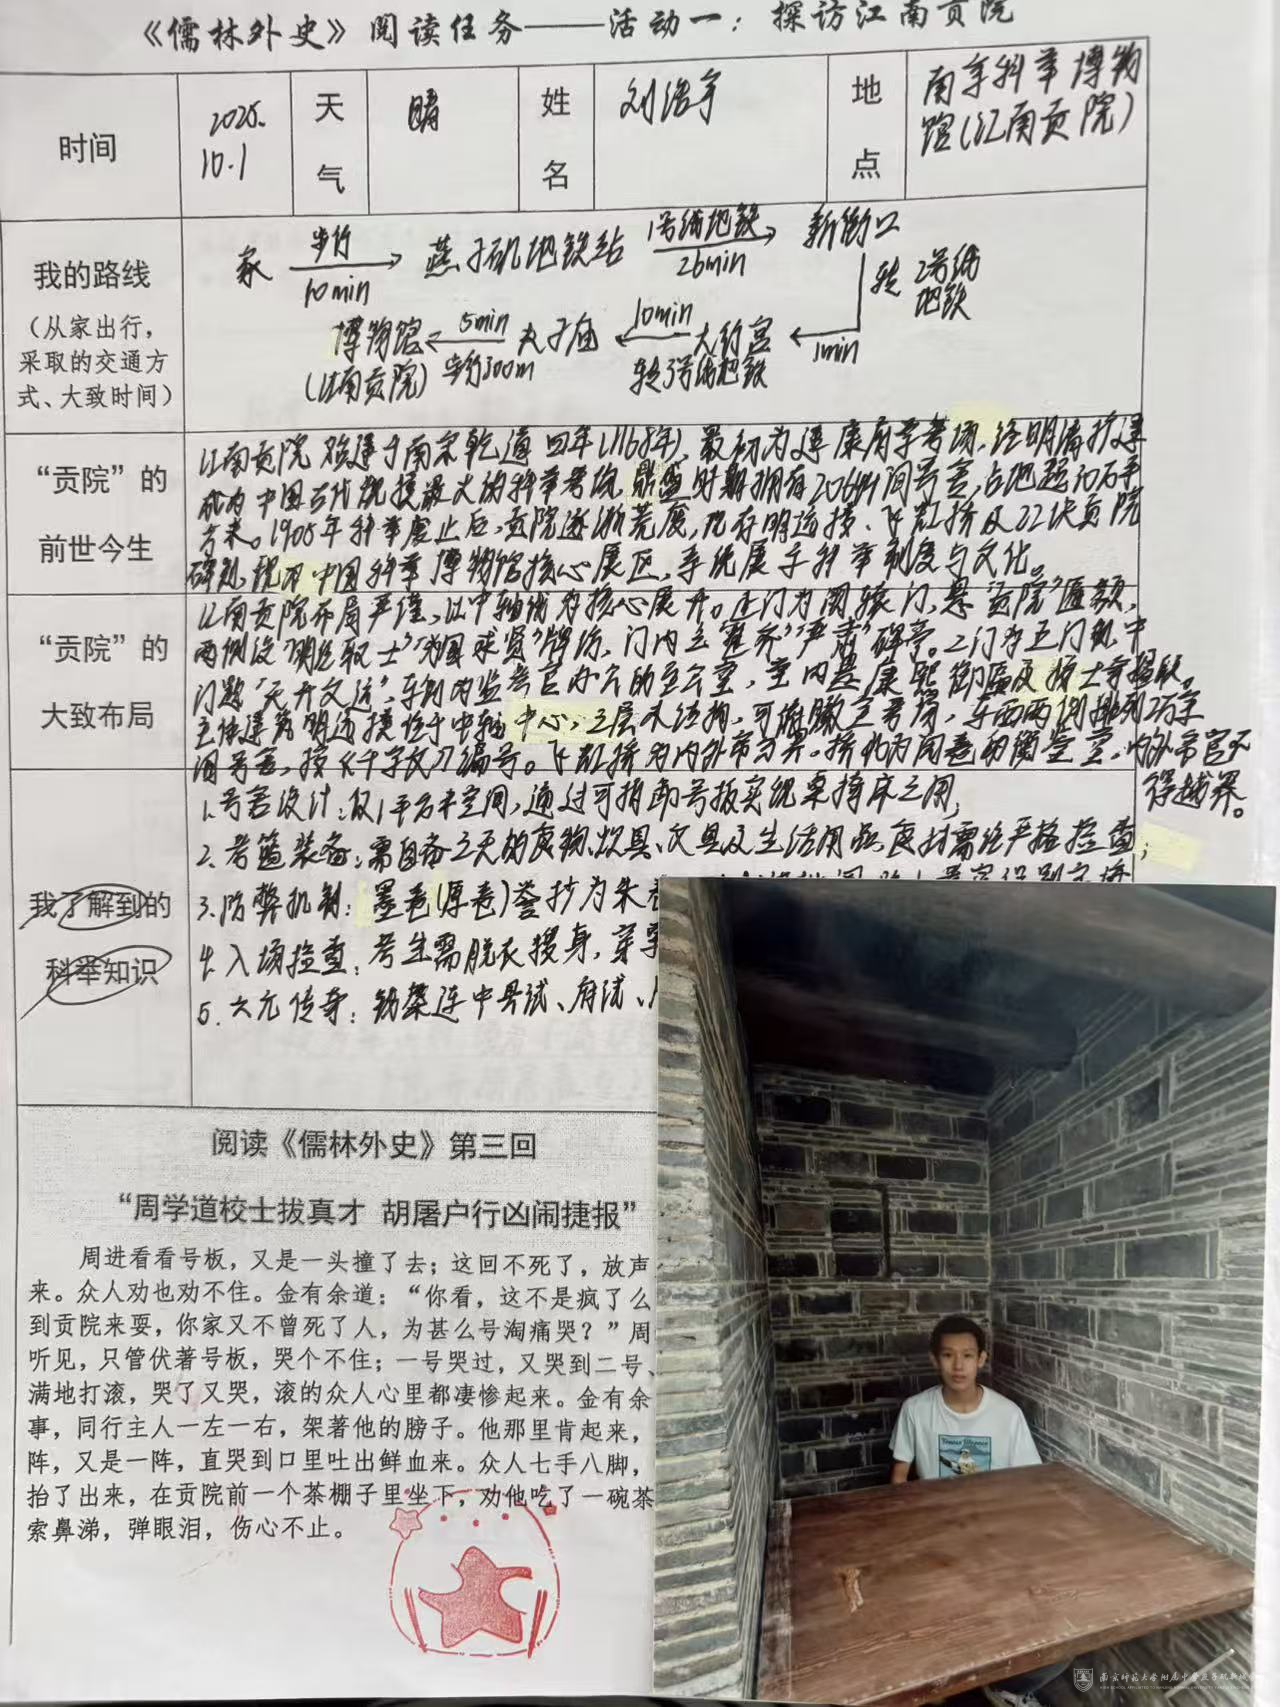 《儒林外史》阅读任务——活动一：探访江南贡院
时间
2025.
10.1
天
气
晴
姓
名
刘浩宇
地
点
南京科举博物
馆(江南贡院)
我的路线
（从家出行，
采取的交通方
式、大致时间）
家 步行 10min 燕子矶地铁站 1号线地铁 26min 新街口
转 2号线
地铁
1min
大行宫
转3号线地铁
10min
夫子庙
5min
步行300m
博物馆
(江南贡院)
“贡院”的
前世今生
江南贡院始建于南宋乾道四年(1168年)，最初为建康府学考场，经明清扩建
成为中国古代规模最大的科举考场，鼎盛时期拥有20644间号舍，占地超30万平
方米。1905年科举废止后，贡院逐渐荒废，现存明远楼、飞虹桥及22块贡院
碑刻，现为中国科举博物馆核心展区，系统展示科举制度与文化。
“贡院”的
大致布局
江南贡院布局严谨，以中轴线为核心展开。正门为开辕门，悬“贡院”匾额，
两侧设“明经取士”“为国求贤”牌坊，门内立“整齐”“严肃”碑亭。二门为五门，中
门题“天开文运”，东侧为监考官办公的至公堂，堂内悬康熙御匾及
主体建筑明远楼位于中轴中心，三层木结构，可俯瞰全考场，东西两侧排列2万余
间号舍，按《千字文》编号。飞虹桥为内外帘分界，桥北为阅卷的衡鉴堂，内外帘官不
得越界。
我了解到的
科举知识
1.号舍设计：仅1平方米空间，通过可拆卸号板实现桌椅床之用；
2.考篮装备：需自备三天的食物、炊具、文具及生活用品，食材需经严格检查；
3.防弊机制：墨卷(原卷)誊抄为朱卷
4.入场检查：考生需脱衣搜身，穿
5.六元传奇：连中县试、府试、
阅读《儒林外史》第三回
“周学道校士拔真才 胡屠户行凶闹捷报”
周进看看号板，又是一头撞了去；这回不死了，放声
来。众人劝也劝不住。金有余道：“你看，这不是疯了么
到贡院来耍，你家又不曾死了人，为甚么号淘痛哭？”周
听见，只管伏著号板，哭个不住；一号哭过，又哭到二号、
满地打滚，哭了又哭，滚的众人心里都凄惨起来。金有余
事，同行主人一左一右，架著他的膀子。他那里肯起来，
阵，又是一阵，直哭到口里吐出鲜血来。众人七手八脚，
抬了出来，在贡院前一个茶棚子里坐下，劝他吃了一碗茶
索鼻涕，弹眼泪，伤心不止。